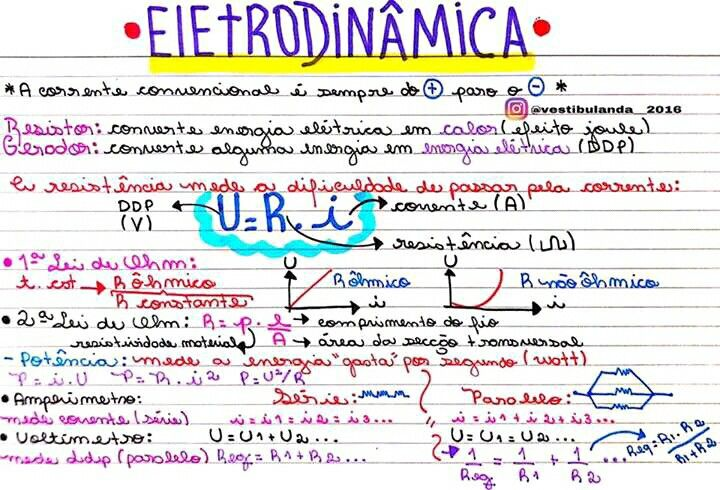 • ELETRODINÂMICA •
* A corrente convencional é sempre do + para o - *
@vestibulanda_2016
Resistor: converte energia elétrica em calor (efeito joule)
Gerador: converte alguma energia em energia elétrica (DDP)
A resistência mede a dificuldade de passar pela corrente:
DDP (V) ← U = R . i → corrente (A)
→ resistência (Ω)
• 1ª Lei de Ohm:
t. cst → R ôhmico
R constante
U i R ôhmico
U i R não ôhmico
• 2ª Lei de Ohm: R = ρ . l → comprimento do fio
resistividade material A → área da secção transversal
- Potência: mede a energia "gasta" por segundo (watt)
P = i . U P = R . i2 P = U²/R
• Amperímetro: Série: Paralelo:
mede corrente (série) i = i1 = i2 = i3... i = i1 + i2 + i3...
• Voltímetro: U = U1 + U2 ... U = U1 = U2 ...
mede ddp (paralelo) Req = R1 + R2 ... 1/Req = 1/R1 + 1/R2 ... Req = R1 . R2 / R1 + R2